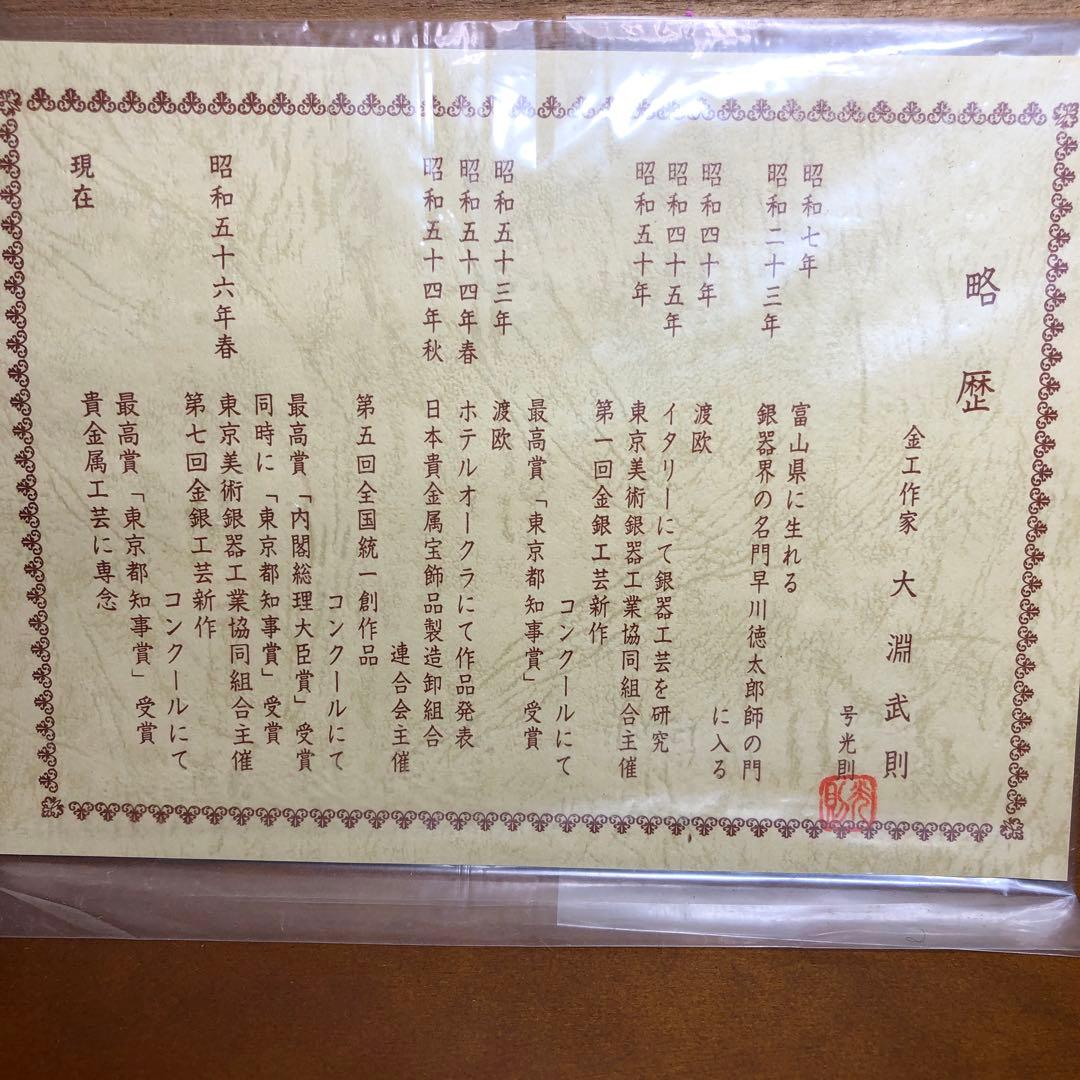 略歴
金工作家 大淵武則
号光則
光則
昭和七年 富山県に生れる
昭和二十三年 銀器界の名門早川徳太郎師の門
に入る
昭和四十年 渡欧
昭和四十五年 イタリーにて銀器工芸を研究
昭和五十年 東京美術銀器工業協同組合主催
第一回金銀工芸新作
コンクールにて
最高賞「東京都知事賞」受賞
昭和五十三年 渡欧
昭和五十四年春 ホテルオークラにて作品発表
昭和五十四年秋 日本貴金属宝飾品製造卸組合
連合会主催
第五回全国統一創作品
コンクールにて
最高賞「内閣総理大臣賞」受賞
同時に「東京都知事賞」受賞
昭和五十六年春 東京美術銀器工業協同組合主催
第七回金銀工芸新作
コンクールにて
最高賞「東京都知事賞」受賞
現在 貴金属工芸に専念